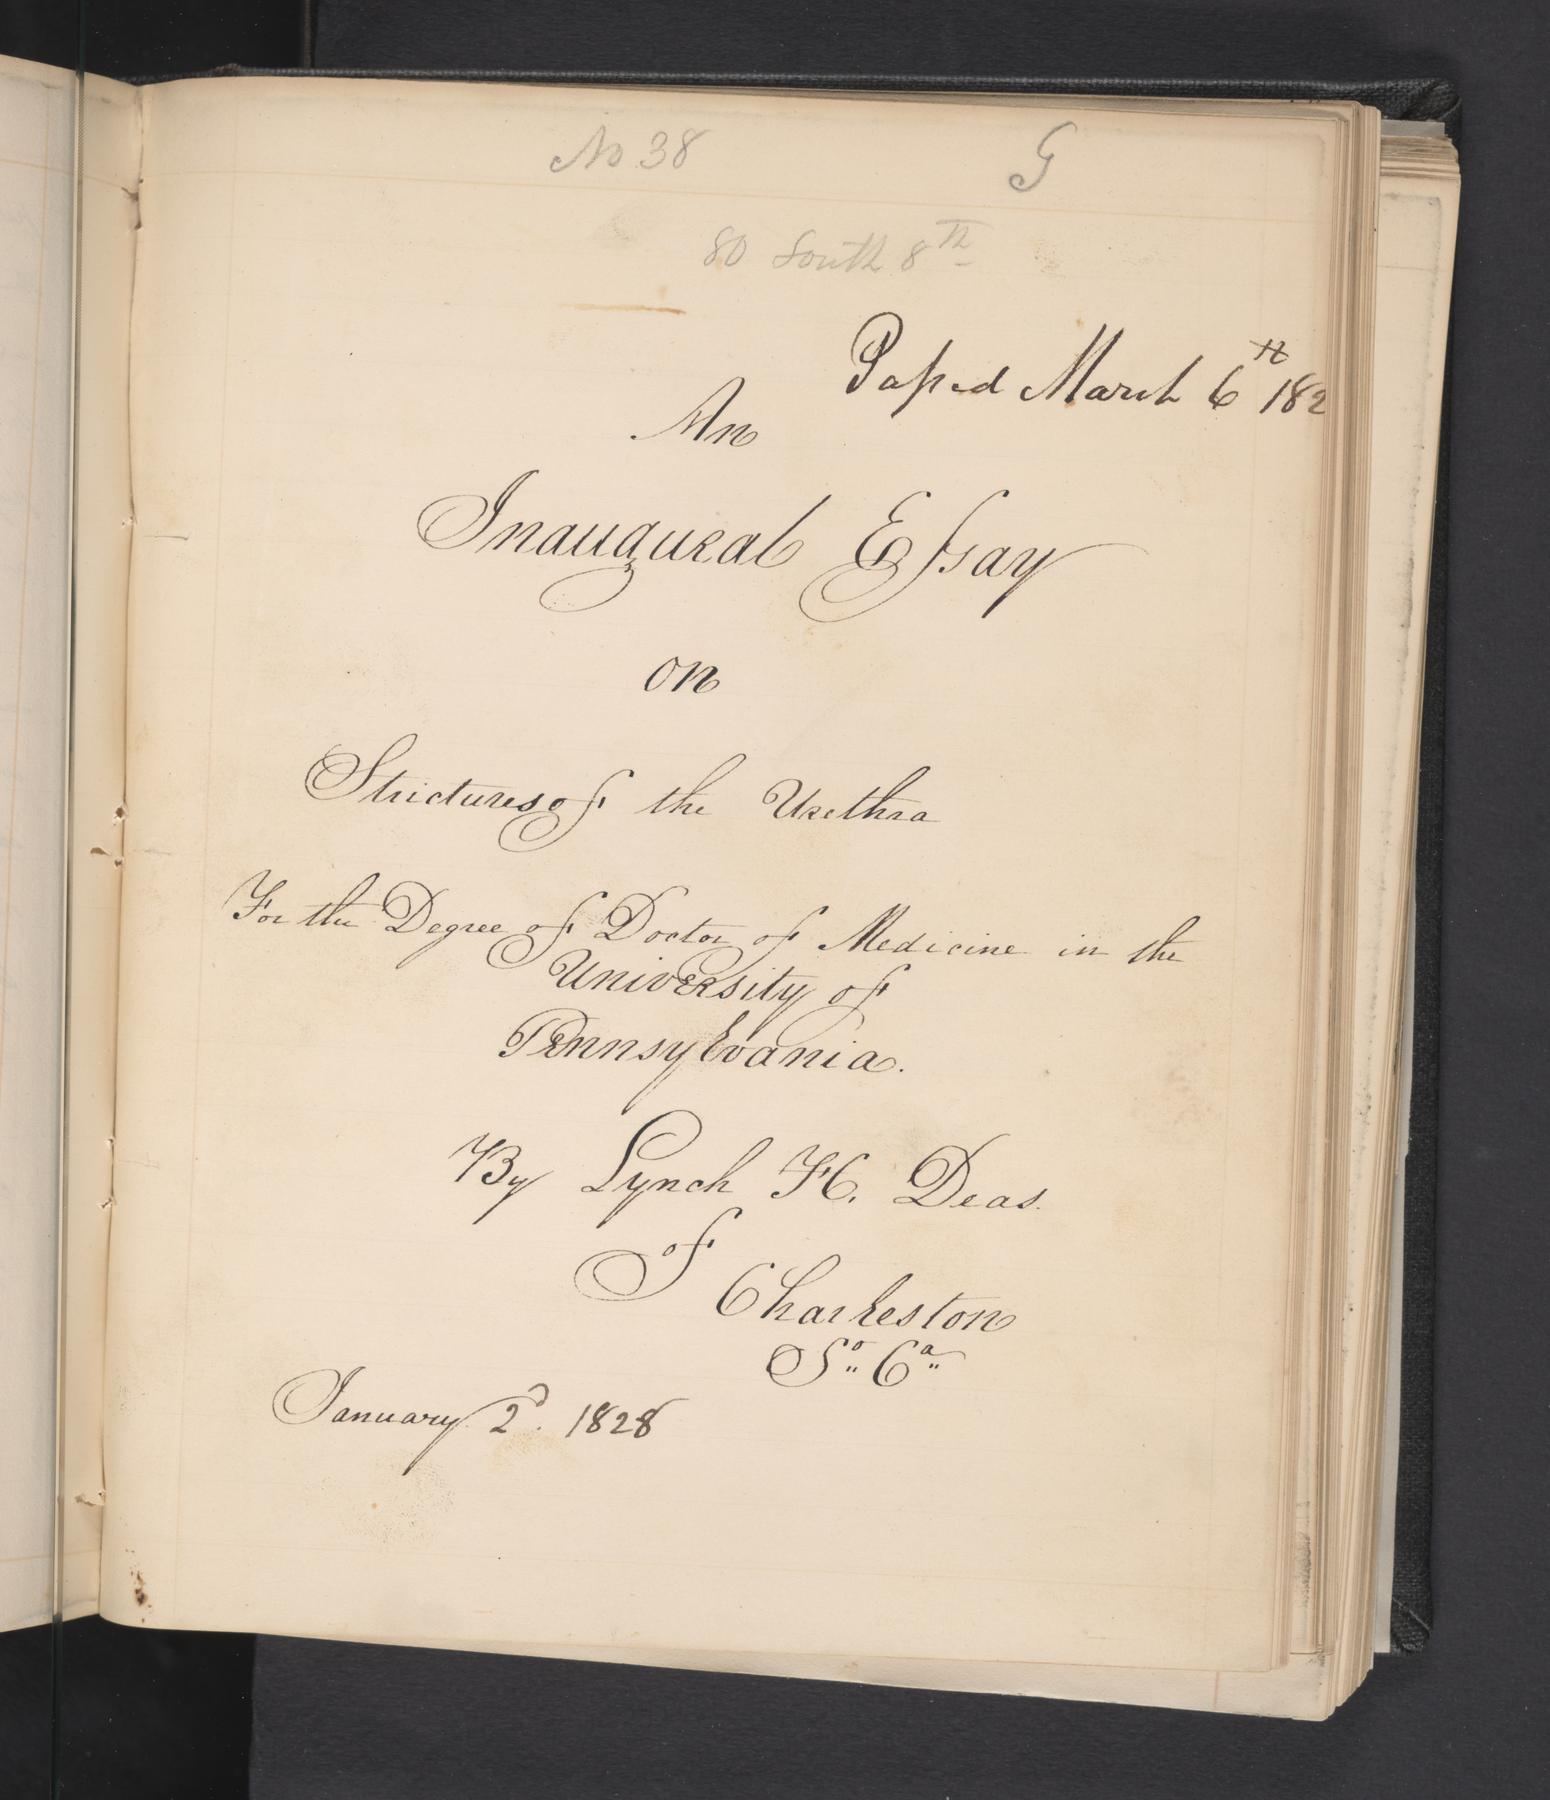 No 38 G
80 South 8th
Passed March 6th 182
An
Inaugural Essay
on
Strictures of the Urethra
For the Degree of Doctor of Medicine in the
University of
Pennsylvania.
By Lynch H. Deas.
of
Charleston
So. Ca.
January 2d. 1828